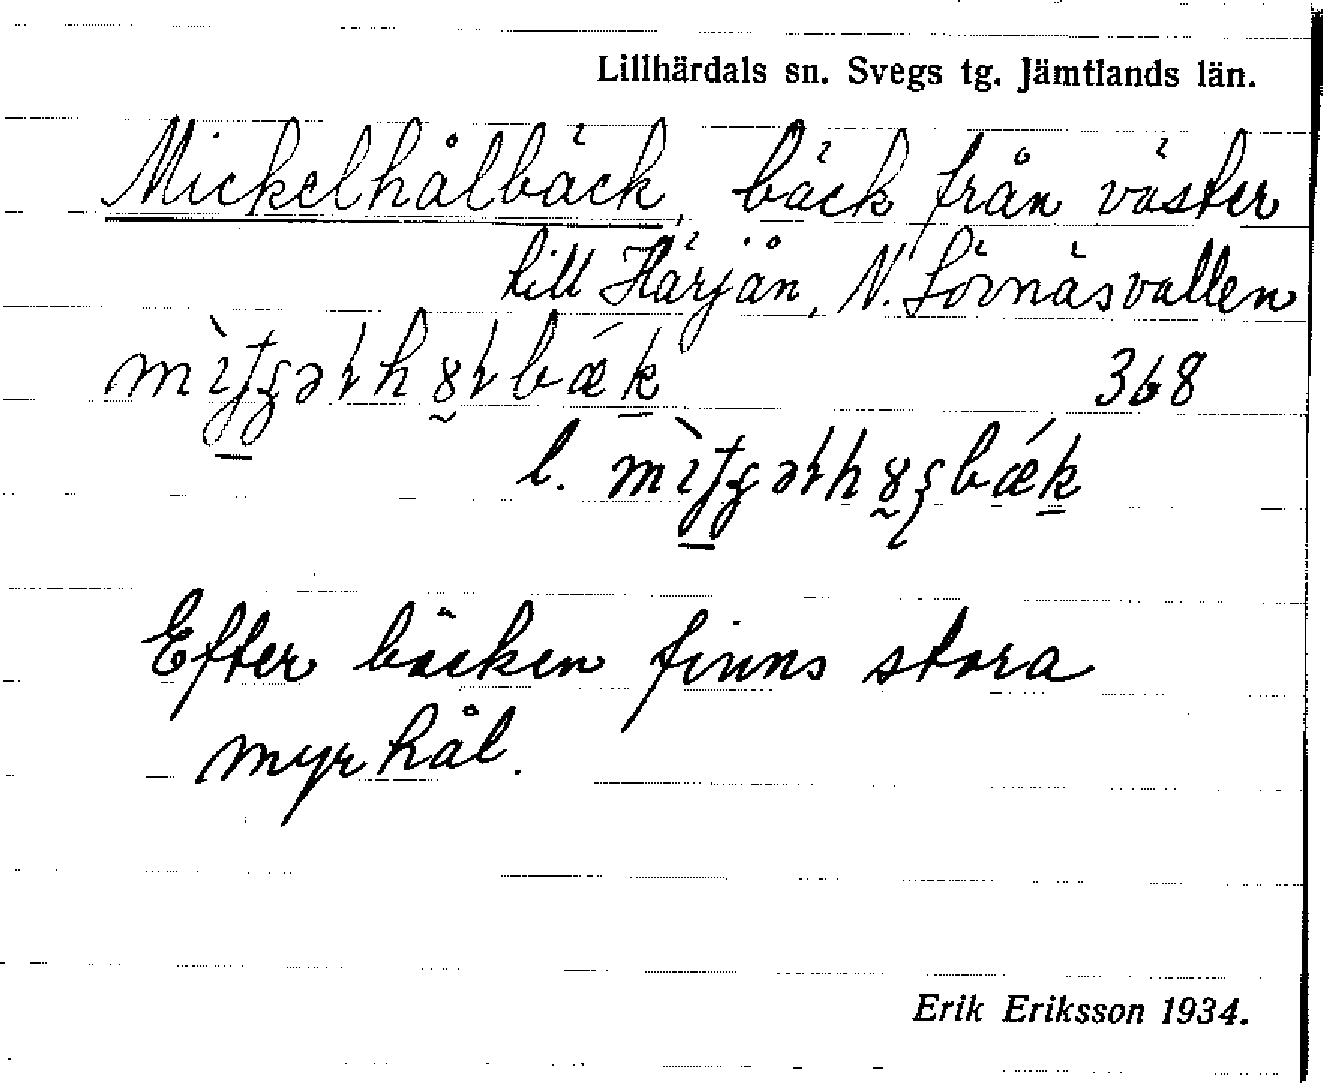 Lillhärdals sn. Svegs tg. Jämtlands län.
Mickelhålbäck, bäck från väster
till Härjån, N. Lövnäsvallen
368
l.
Efter bäcken finns stora
myrhål.
Erik Eriksson 1934.